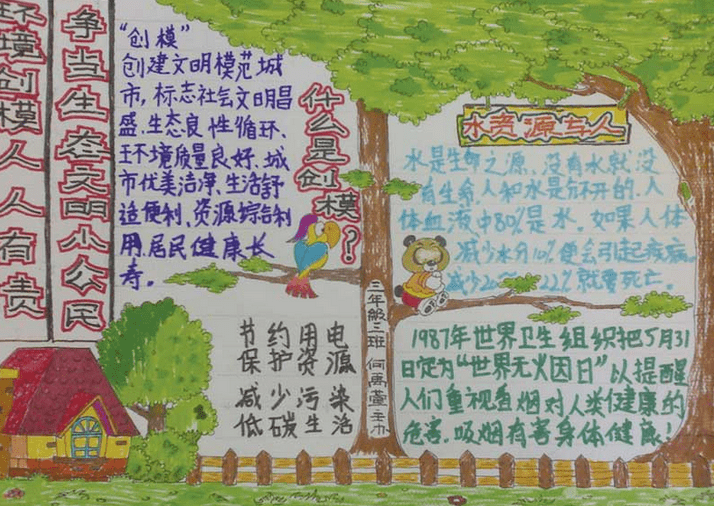 环境创模人人有责
争当生态文明小公民
什么是创模?
“创模”
创建文明模范城
市,标志社会文明昌
盛、生态良性循环、
环境质量良好、城
市优美洁净、生活舒
适便利、资源综合利
用、居民健康长
寿。
节约用电
保护资源
减少污染
低碳生活
三年级三班
水资源与人
水是生命之源,没有水就没
有生命,人和水是分不开的,人
体血液中80%是水,如果人体
减少水分10%便会引起疾病,
减少20%~22%就要死亡。
1987年世界卫生组织把5月31
日定为“世界无火因日”以提醒
人们重视香烟对人类健康的
危害。吸烟有害身体健康!